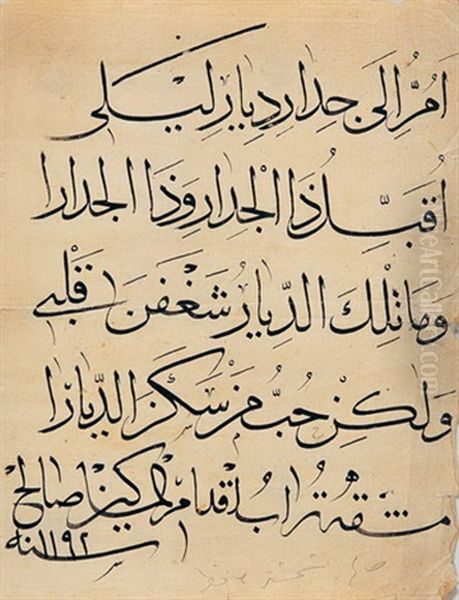 اَمُرُّ اِلَى جِدَارِ دِيَارِ لَيْلَى
اُقَبِّلُ ذَا الْجِدَارِ وَذَا الْجِدَارَا
وَمَا تِلْكَ الدِّيَارُ شَغَفْنَ قَلْبِي
وَلٰكِنْ حُبُّ مَنْ سَكَنَ الدِّيَارَا
مشقه تراب اقدام المساكين صالح
سنه ١١٩٢